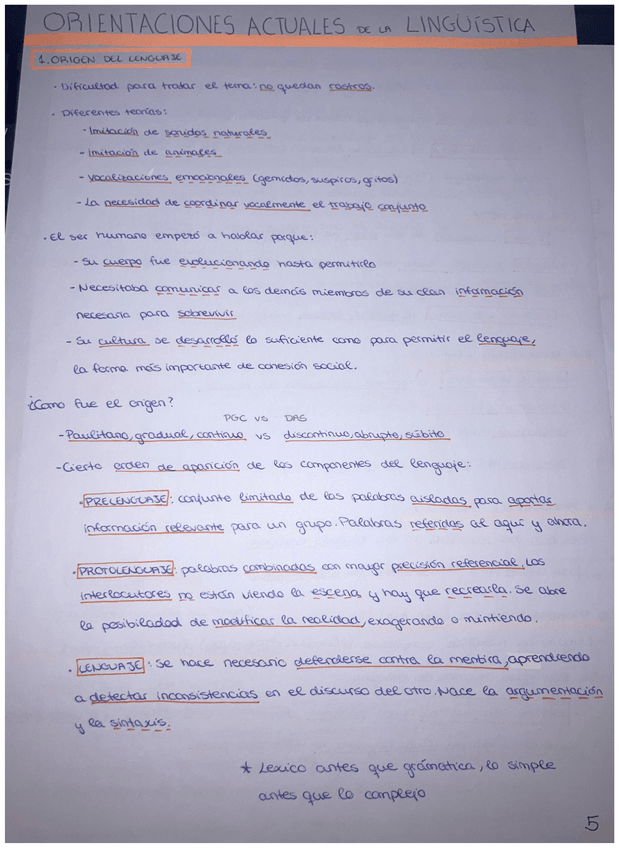 ORIENTACIONES ACTUALES DE LA LINGÜÍSTICA
1. ORIGEN DEL LENGUAJE
· Dificultad para tratar el tema: no quedan rastros.
· Diferentes teorías:
- Imitación de sonidos naturales
- Imitación de animales
- Vocalizaciones emocionales (gemidos, suspiros, gritos)
- La necesidad de coordinar vocalmente el trabajo conjunto
· El ser humano empezó a hablar porque:
- Su cuerpo fue evolucionando hasta permitirlo
- Necesitaba comunicar a los demás miembros de su clan información
necesaria para sobrevivir
- Su cultura se desarrolló lo suficiente como para permitir el lenguaje,
la forma más importante de conesión social.
¿Como fue el origen?
PGC vs DAS
- Paulitano, gradual, continuo vs discontinuo, abrupto, súbito
- Cierto orden de aparición de los componentes del lenguaje:
· PRELENGUAJE: conjunto limitado de las palabras aisladas para aportar
información relevante para un grupo. Palabras referidas al aquí y ahora.
· PROTOLENGUAJE: palabras combinadas con mayor precisión referencial. Los
interlocutores no están viendo la escena y hay que recrearla. Se abre
la posibiladad de modificar la realidad, exagerando o mintiendo.
· LENGUAJE: Se hace necesario defenderse contra la mentira, aprendiendo
a detectar inconsistencias en el discurso del otro. Nace la argumentación
y la sintaxis.
* Lexico antes que grámatica, lo simple
antes que lo complejo
5